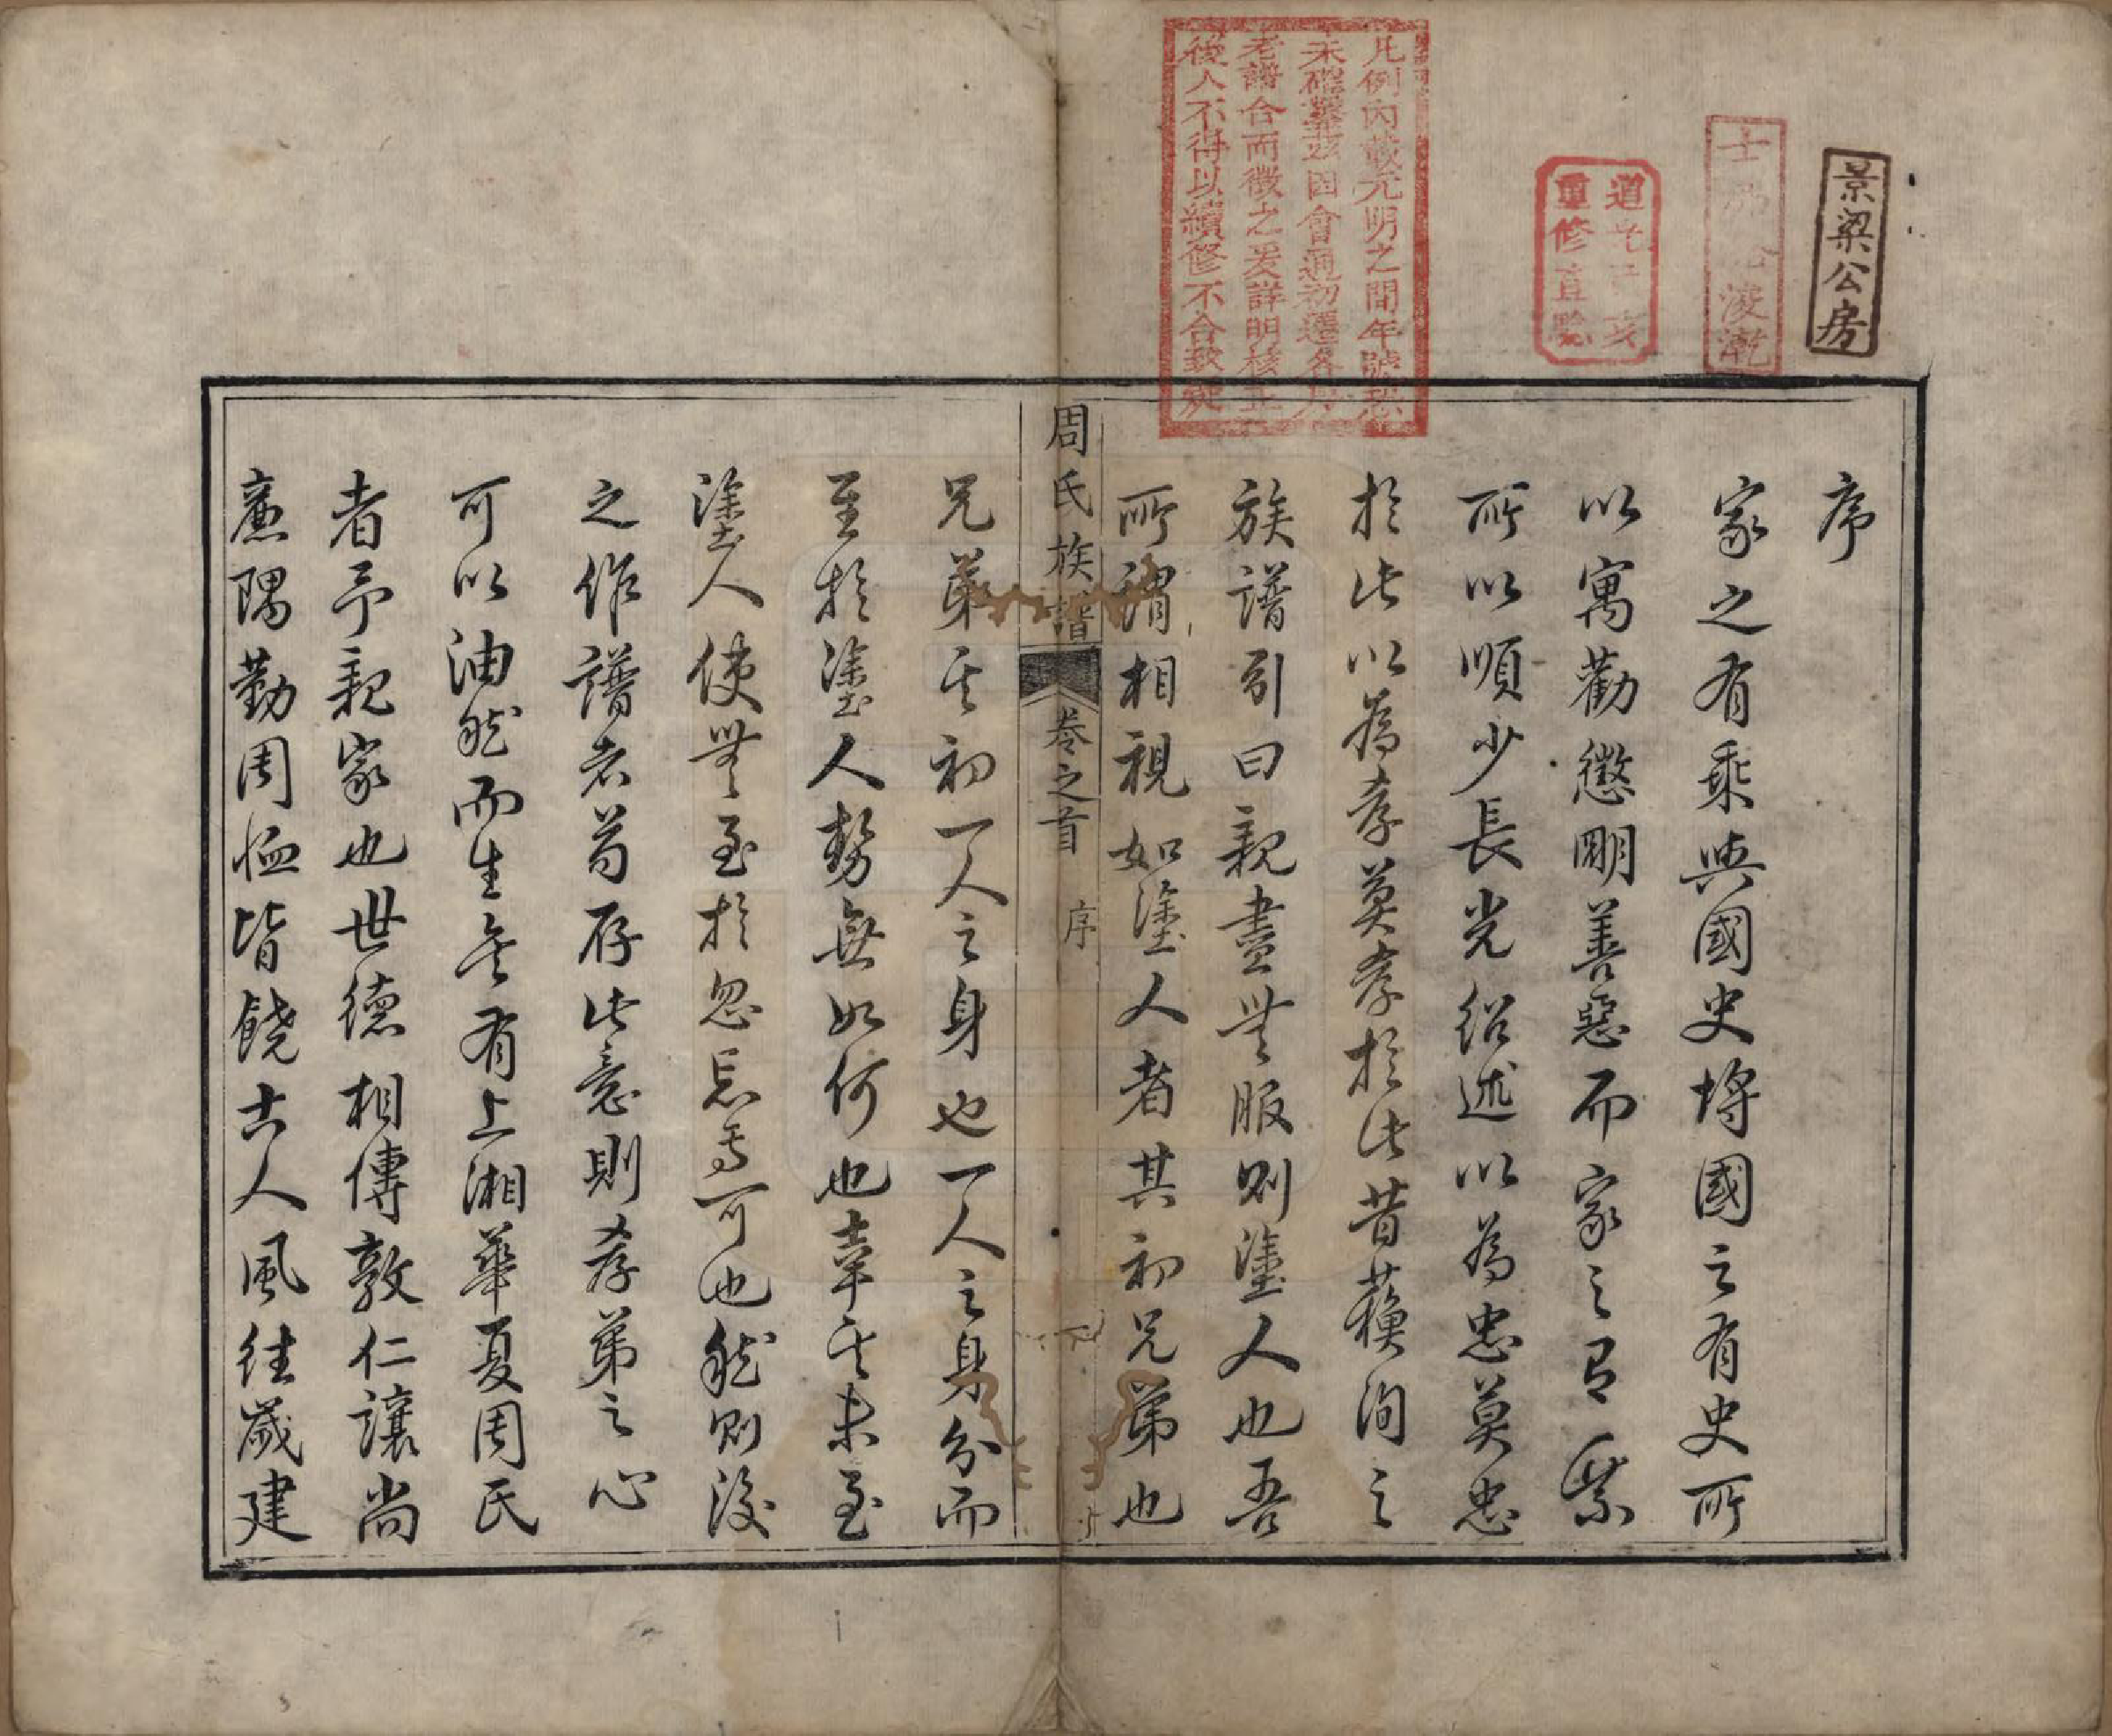 景梁公房
道光己亥
重修直點
凡例內載元明之間年號
未確茲因會通初遷各房
老譜合而徵之爰詳明核正
後人不得以續修不合致疑
序
家之有乘與國史埒國之有史所
以寓勸懲明善惡而家之有乘
所以順少長光紹述以為忠莫忠
於此以為孝莫孝於此昔蘓洵之
族譜引曰親盡無服則塗人也吾
所謂相視如塗人者其初兄弟也
周氏族譜 卷之首 序
兄弟其初一人之身也一人之身分而
至於塗人勢無如何也幸其未至
塗人使無至於忽忘焉可也然則後
之作譜者苟存此意則孝弟之心
可以油然而生矣有上湘華夏周氏
者予親家也世德相傳敦仁讓尚
廉隅勤周恤皆饒古人風往歲建